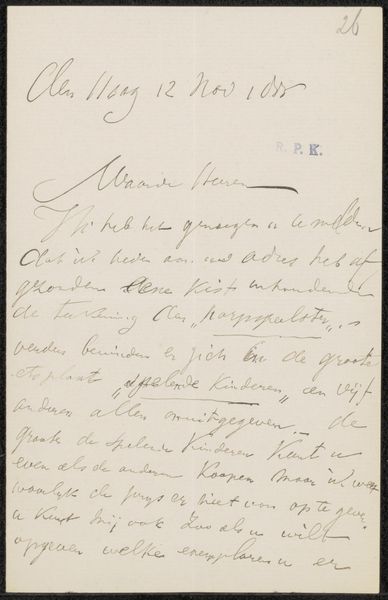 26
Den Haag 12 Nov 188
R. P. K.
Waarde Heeren
Ik heb het genoegen u te melden
dat ik heden aan uw adres heb af
gezonden eene Kist inhoudende
de teekening der „harpspeelster„
verders bevinden er zich in de groote
etsplaat „spelende Kinderen„ en vijf
anderen allen onuitgegeven de
groote de spelende Kinderen Kunt u
even als de anderen Koopen maar ik weet
de prys er niet van op te geven
u Kunt mij ook zoo als u wilt
opgeven welke exemplaren u er